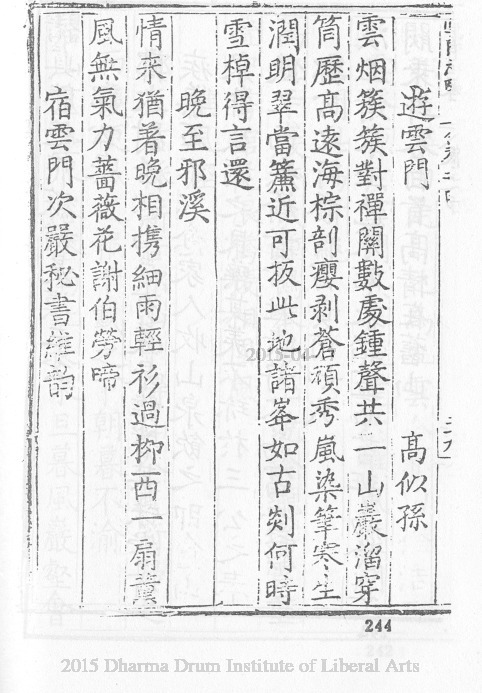 遊雲門
高似孫
雲烟簇簇對禪關數處鍾聲共一山巖溜穿
筒歷高遠海棕剖癭剥蒼頑秀嵐染筆寒生
潤明翠當簷近可扳此地諸峯如古剡何時
雪棹得言還
晚至邪溪
情来猶著晚相擕細雨輕衫過柳西一扇薰
風無氣力薔薇花謝伯勞啼
宿雲門次嚴秘書維韵
244
2015 Dharma Drum Institute of Liberal Arts